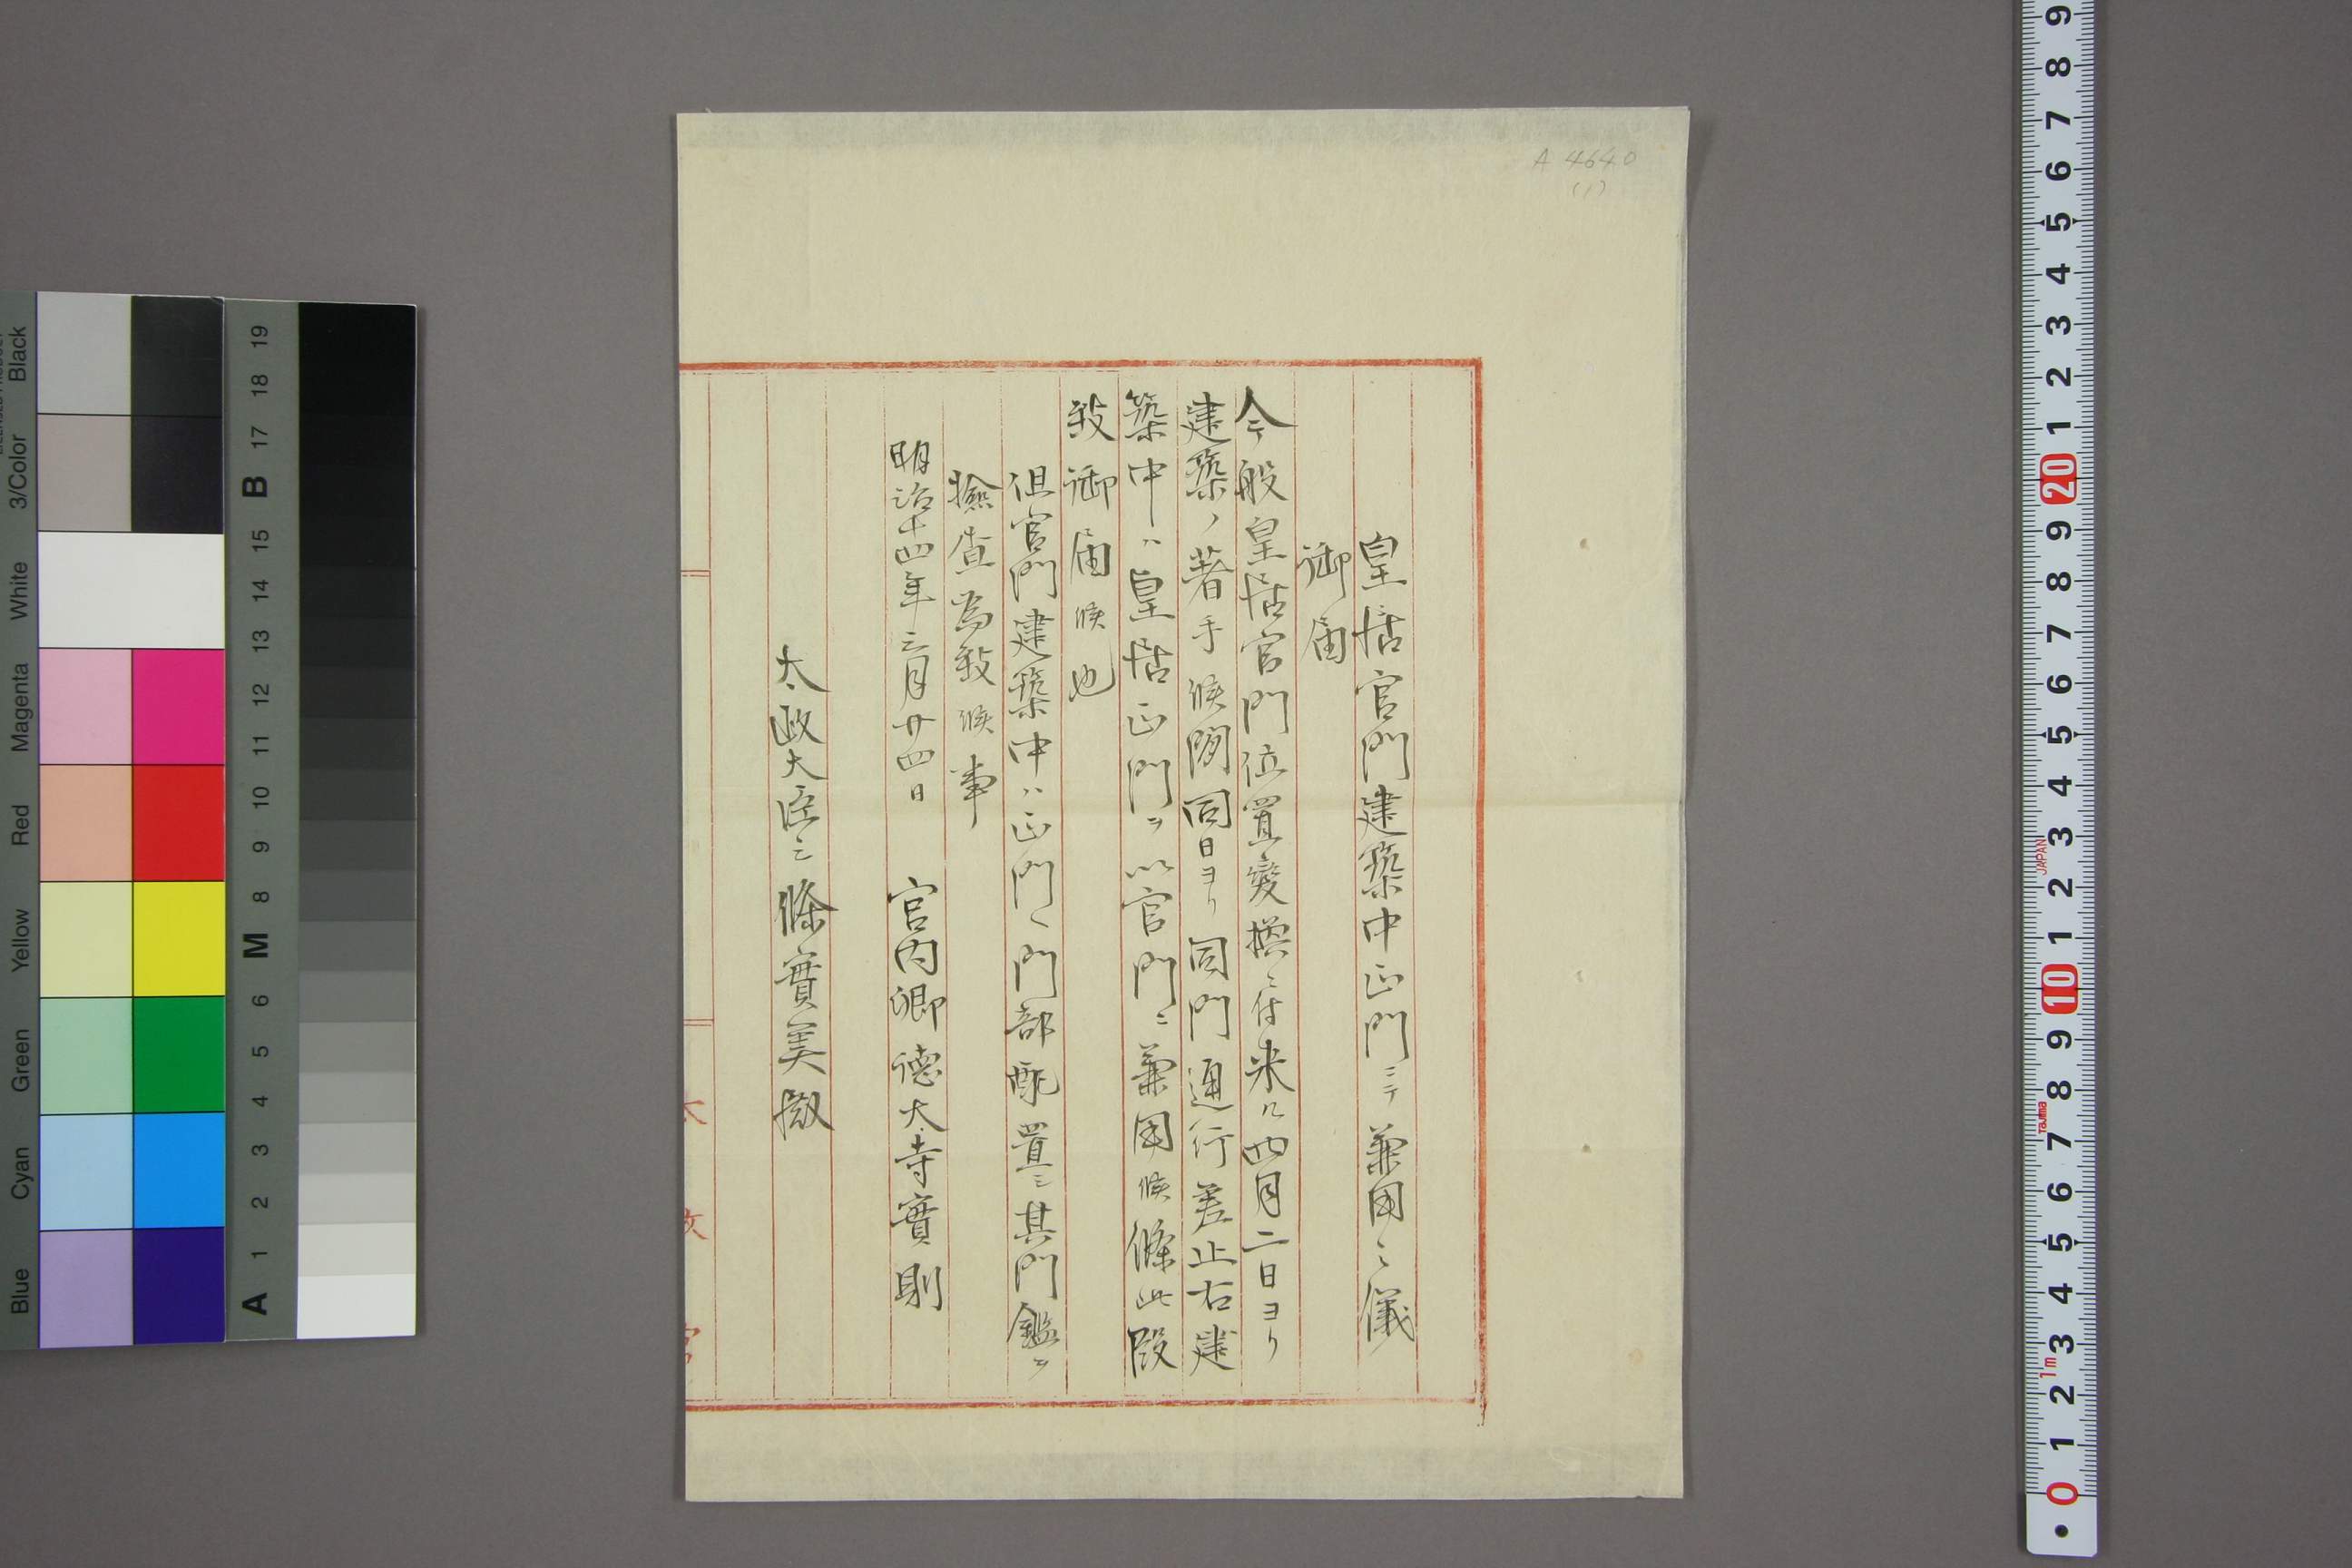 A 4640
(1)
皇居宮門建築中正門ニテ兼用之儀
御届
今般皇居宮門位置變換ニ付来ル四月二日ヨリ
建築ノ著手候間同日ヨリ同門通行差止右建
築中ハ皇居正門ヲ以宮門ニ兼用候條此段
致御届候也
但宮門建築中ハ正門ヘ門部配置シ其門鑑ヲ
撿査為致候事
明治十四年三月廿四日 宮内卿 徳大寺實則
太政大臣三條實美殿
Blue Cyan Green Yellow Red Magenta White 3/Color Black
A 1 2 3 4 5 6 M 8 9 10 11 12 13 14 15 B 17 18 19
0 1 2 3 4 5 6 7 8 9 10 1 2 3 4 5 6 7 8 9 20 1 2 3 4 5 6 7 8 9
1m Tajima JAPAN